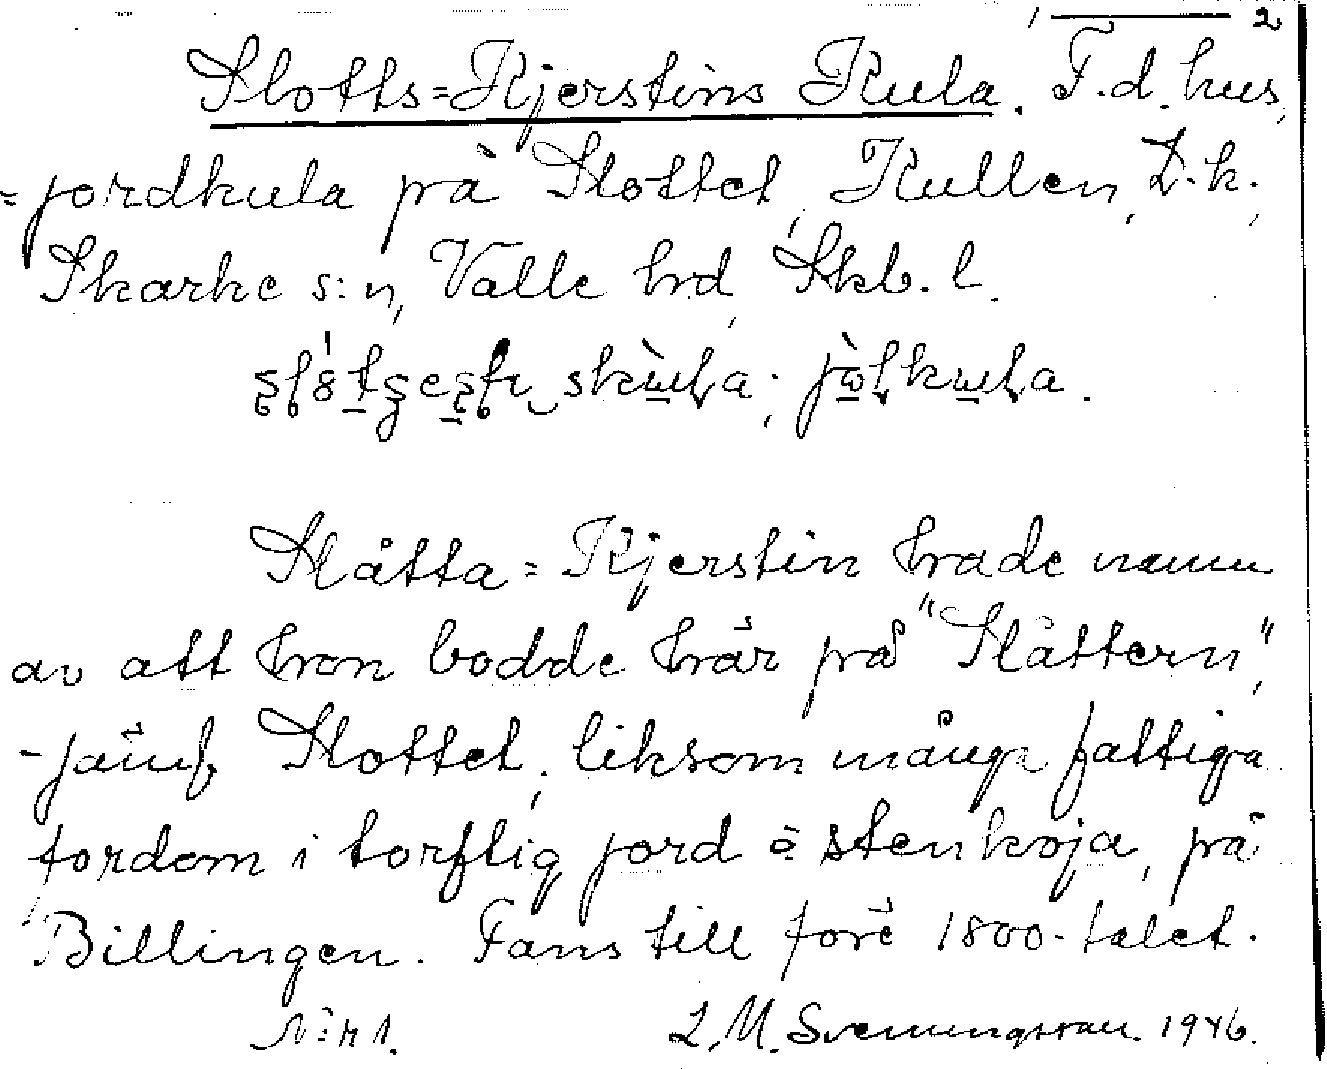 1 ——— 2
Slotts=Kjerstins Kula. F.d. hus,
=jordkula på Slottet, Kullen, D.k.,
Skarke s:n, Valle hrd, Skb. l.
Slåtta=Kjerstin hade namn
av att hon bodde här på "Slåttern",
-jämf. Slottet, liksom många fattiga
fordom i torftig jord å stenkoja, på
Billingen. Fans till före 1800-talet.
N:r 1. L. M. Svenungsson. 1946.